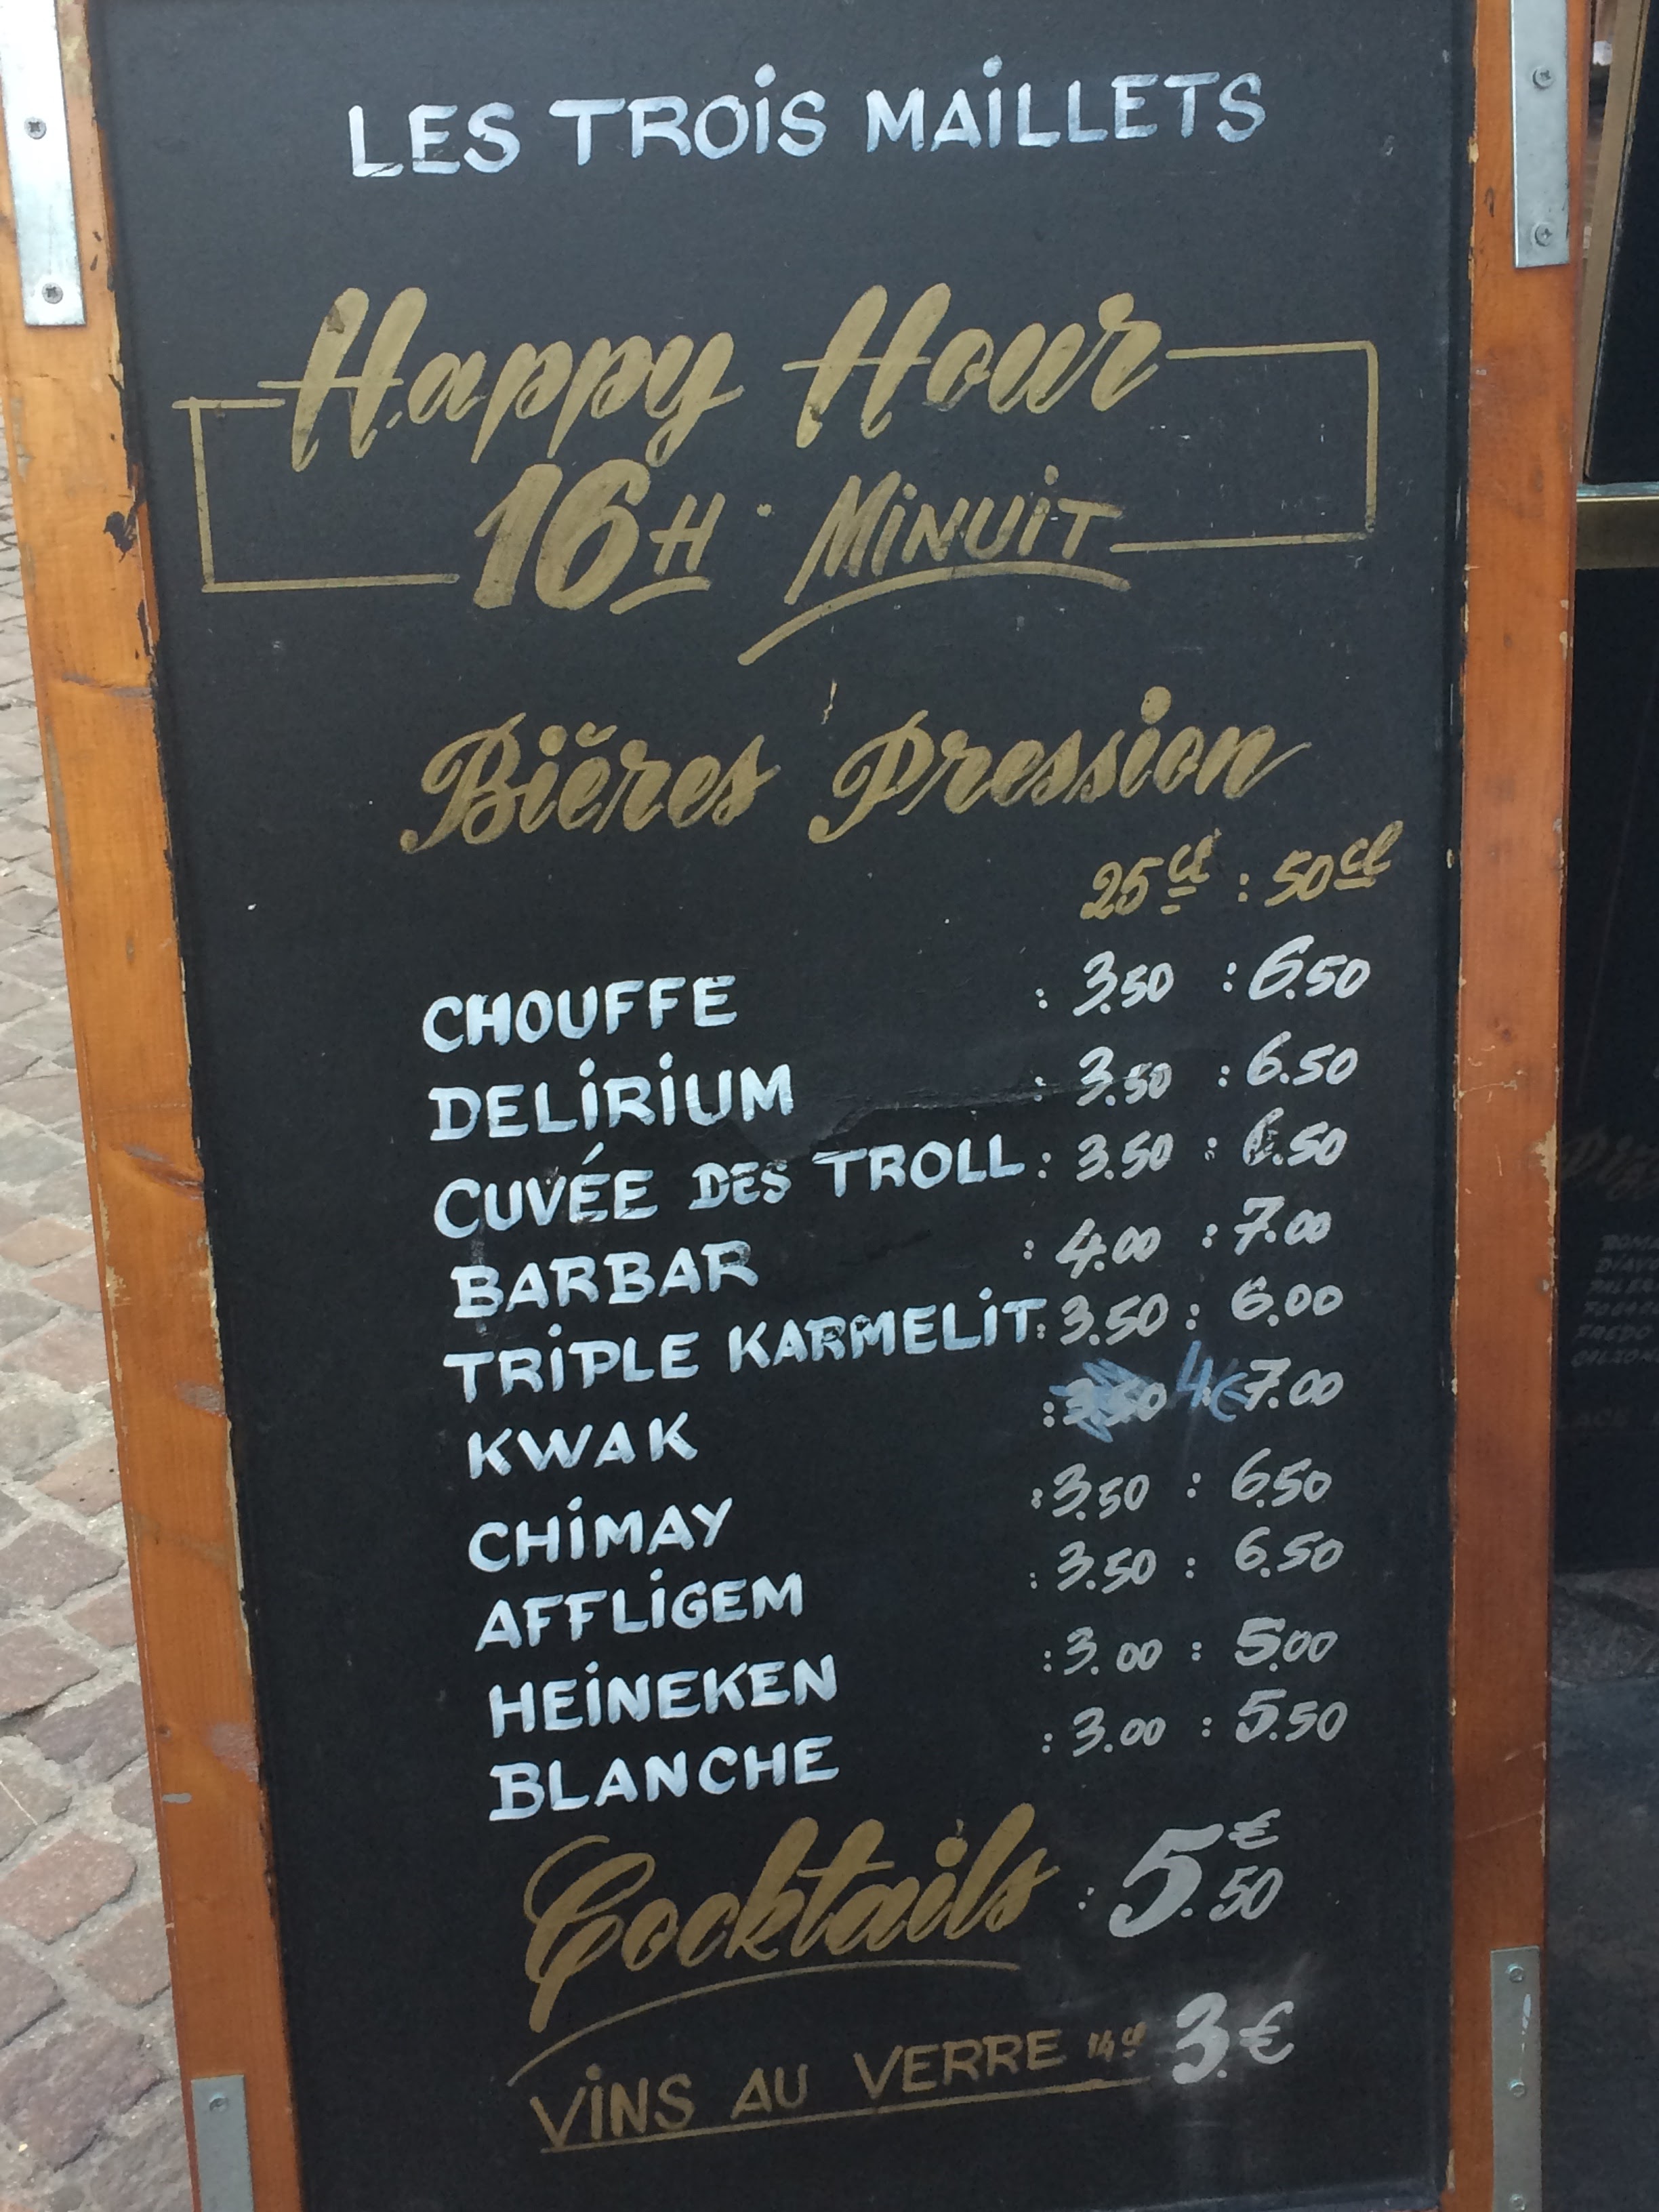 LES TROIS MAILLETS
Happy Hour
16H · MINUIT
Bières Pression
25cl : 50cl
CHOUFFE : 3.50 : 6.50
DELIRIUM : 3.50 : 6.50
CUVÉE DES TROLL : 3.50 : 6.50
BARBAR : 4.00 : 7.00
TRIPLE KARMELIT : 3.50 : 6.00
KWAK : 3.50 4€ 7.00
CHIMAY : 3.50 : 6.50
AFFLIGEM : 3.50 : 6.50
HEINEKEN : 3.00 : 5.00
BLANCHE : 3.00 : 5.50
Cocktails : 5.50€
VINS AU VERRE 14cl 3€